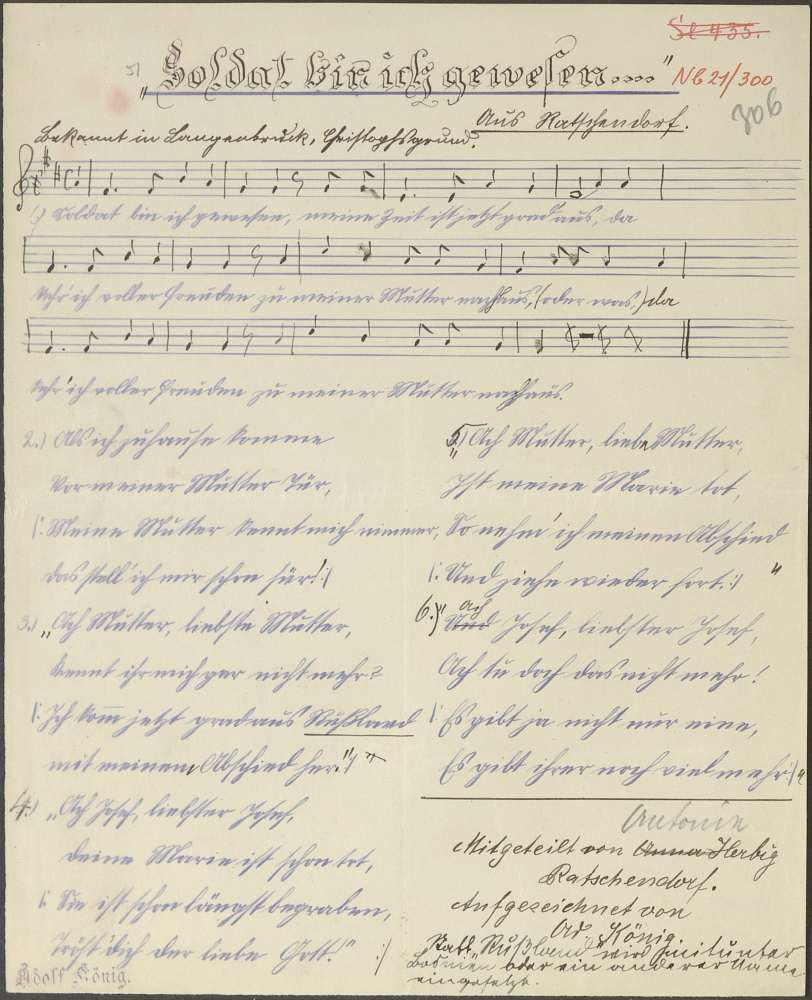 St 435.
5)
„Soldat bin ich gewesen....“
Nb 21/300
306
Aus Ratschendorf.
Bekannt in Langenbruck, Christophsgrund.
1.) Soldat bin ich gewesen, meine Zeit ist jetzt grad aus, da
kehr' ich voller Freuden zu meiner Mutter nachhaus, (oder was,) da
kehr' ich voller Freuden zu meiner Mutter nachhaus.
2.) Als ich zuhause komme
Vor meiner Mutter Tür,
|: Meine Mutter kennt mich nimmer,
das stell' ich mir schon für! :|
3.) „Ach Mutter, liebste Mutter,
kennt ihr mich gar nicht mehr?
|: Ich komm jetzt grad aus Rußland
mit meinem Abschied her.“ :| +
4.) „Ach Josef, liebster Josef,
deine Marie ist schon tot,
|: Sie ist schon längst begraben,
Tröst' dich der liebe Gott!“ :|
5.) „Ach Mutter, liebe Mutter,
Ist meine Marie tot,
So nehm' ich meinen Abschied
|: Und ziehe wieder fort. :| “
6.) „Und ach Josef, liebster Josef,
Ach tu doch das nicht mehr!
|: Es gibt ja nicht nur eine,
Es gibt ihrer noch viel mehr :| “
Antonie
Mitgeteilt von Anna Herbig
Ratschendorf.
Aufgezeichnet von
Ad. König.
Statt „Rußland“ wird mitunter
Bosnien oder ein anderer Name
eingesetzt.
Adolf König.